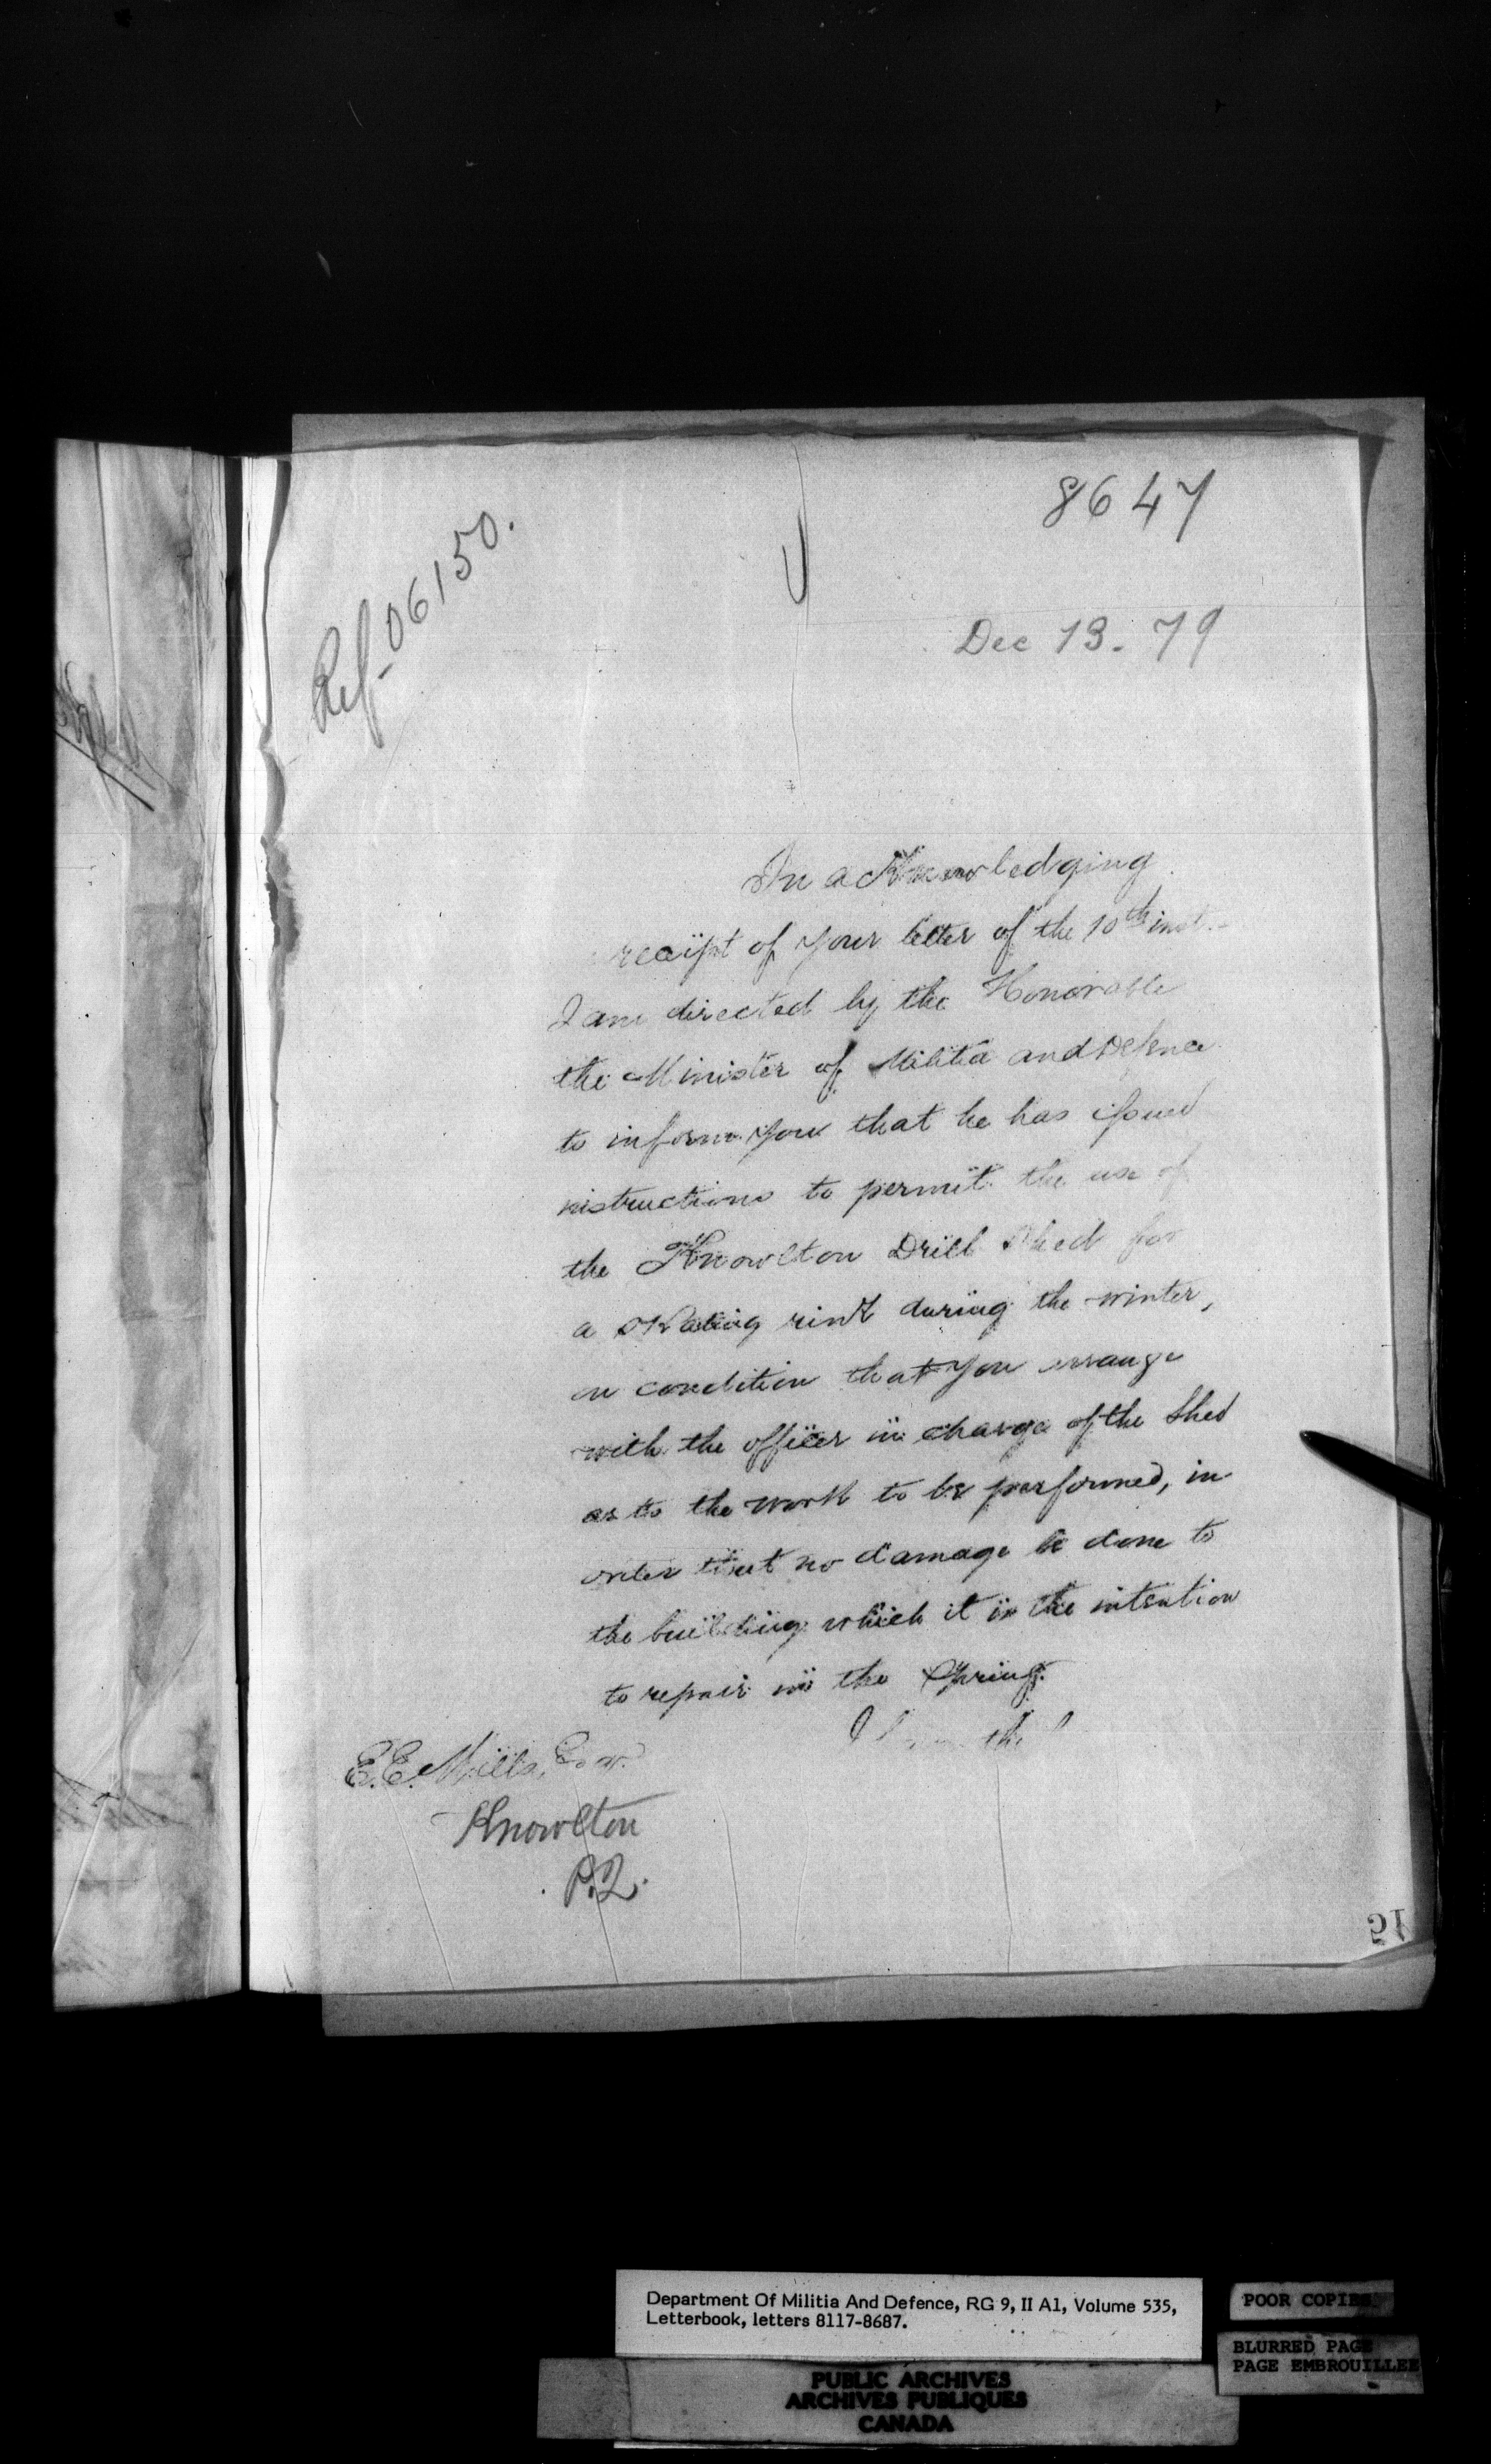 8647
Ref 06150.
Dec 13. 79
In acknowledging
receipt of your letter of the 10th inst.
I am directed by the Honorable
the Minister of Militia and Defence
to inform you that he has issued
instructions to permit the use of
the Knowlton Drill Shed for
a skating rink during the winter,
on condition that you arrange
with the officer in charge of the Shed
as to the work to be performed, in
order that no damage be done to
the building which it is the intention
to repair in the Spring.
E.E. Mills, Esqr.
Knowlton
P.Q.
Department Of Militia And Defence, RG 9, II A1, Volume 535,
Letterbook, letters 8117-8687.
POOR COPIES
BLURRED PAGE
PAGE EMBROUILLEE
PUBLIC ARCHIVES
ARCHIVES PUBLIQUES
CANADA